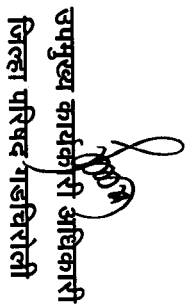 उपमुख्य कार्यकारी अधिकारी
जिल्हा परिषद गडचिरोली